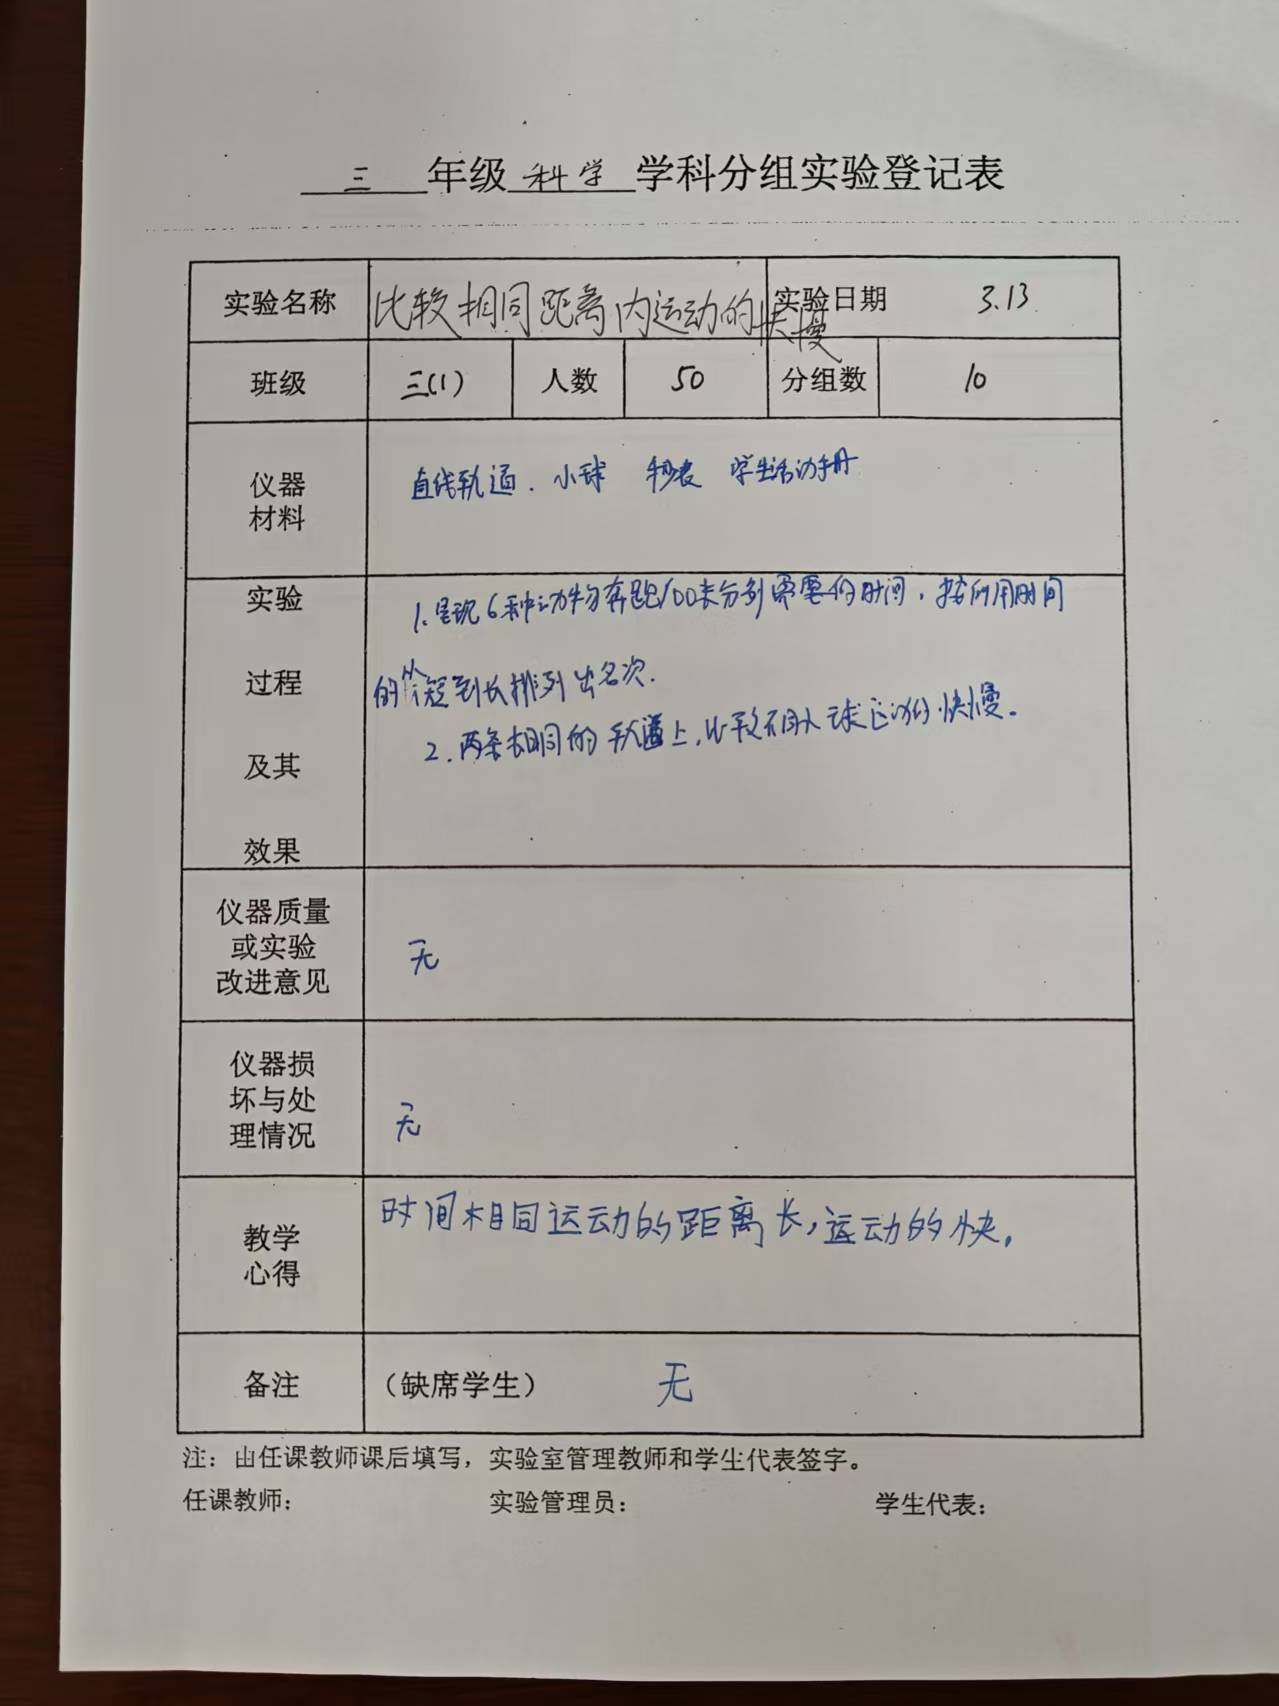 三 年级 科学 学科分组实验登记表
实验名称 比较相同距离内运动的快慢 实验日期 3.13
班级 三(1) 人数 50 分组数 10
仪器
材料
直线轨道. 小球 秒表 学生活动手册
实验
过程
及其
效果
1. 呈现6种动物奔跑100米分别需要的时间, 按所用时间
的从短到长排列出名次.
2. 两条相同的轨道上, 比较不同小球运动的快慢.
仪器质量
或实验
改进意见
无
仪器损
坏与处
理情况
无
教学
心得
时间相同运动的距离长,运动的快.
备注 (缺席学生) 无
注: 由任课教师课后填写, 实验室管理教师和学生代表签字。
任课教师: 实验管理员: 学生代表: